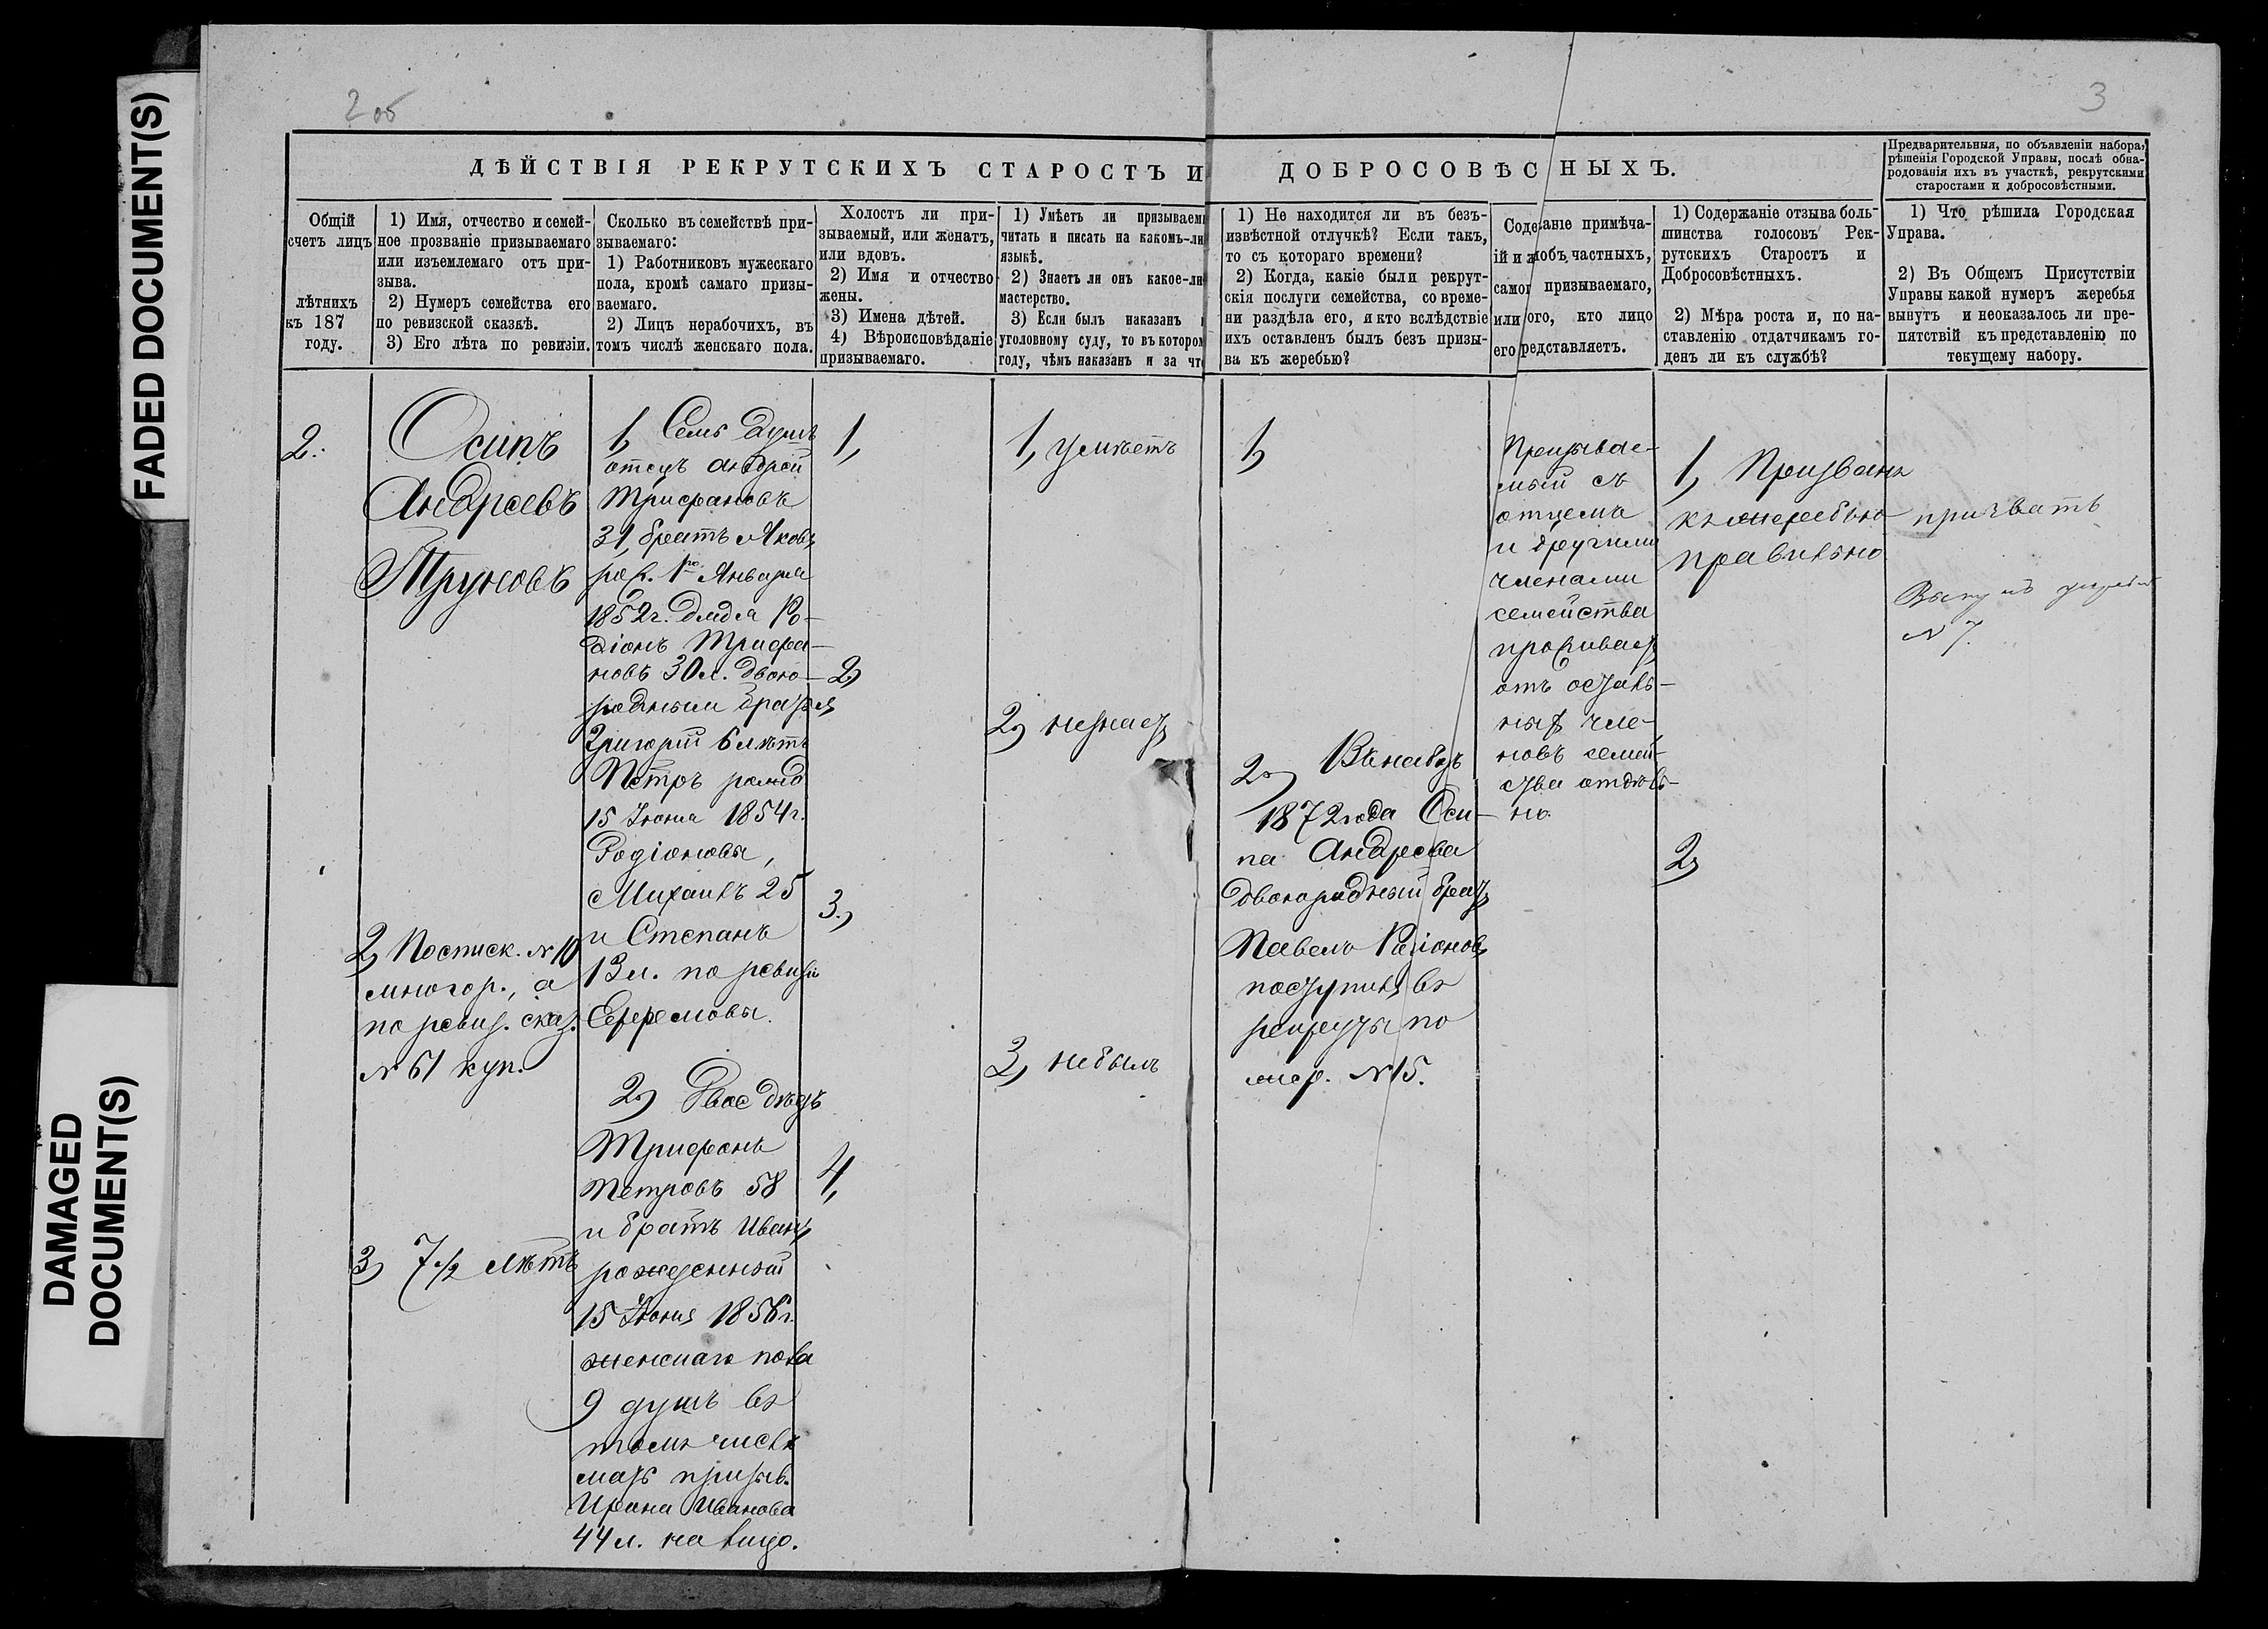 FADED DOCUMENT(S)
DAMAGED
DOCUMENT(S)
2 об
3
ДѢЙСТВІЯ РЕКРУТСКИХЪ СТАРОСТЪ И ДОБРОСОВѢСНЫХЪ.
Предварительныя, по объявленіи набора,
рѣшенія Городской Управы, послѣ обна-
родованія ихъ въ участкѣ, рекрутскими
старостами и добросовѣстными.
Общій
счетъ лицъ
лѣтнихъ
къ 187
году.
1) Имя, отчество и семей-
ное прозваніе призываемаго
или изъемлемаго отъ при-
зыва.
2) Нумеръ семейства его
по ревизской сказкѣ.
3) Его лѣта по ревизіи.
Сколько въ семействѣ при-
зываемаго:
1) Работниковъ мужескаго
пола, кромѣ самаго призы-
ваемаго.
2) Лицъ нерабочихъ, въ
томъ числѣ женскаго пола.
Холостъ ли при-
зываемый, или женатъ,
или вдовъ.
2) Имя и отчество
жены.
3) Имена дѣтей.
4) Вѣроисповѣданіе
призываемаго.
1) Умѣетъ ли призываем
читать и писать на какомъ-ли
языкѣ.
2) Знаетъ ли онъ какое-ли
мастерство.
3) Если былъ наказанъ
уголовному суду, то въ котором
году, чѣмъ наказанъ и за чт
1) Не находится ли въ безъ-
извѣстной отлучкѣ? Если такъ,
то съ котораго времени?
2) Когда, какіе были рекрут-
скія послуги семейства, со време-
ни раздѣла его, и кто вслѣдствіе
ихъ оставленъ былъ безъ призы-
ва къ жеребью?
Соде аніе примѣча-
ій и жобъ частныхъ,
самог призываемаго,
или ого, кто лицо
его редставляетъ.
1) Содержаніе отзыва боль-
шинства голосовъ Рек-
рутскихъ Старостъ и
Добросовѣстныхъ.
2) Мѣра роста и, по на-
ставленію отдатчикамъ го-
денъ ли къ службѣ?
1) Что рѣшила Городская
Управа.
2) Въ Общемъ Присутствіи
Управы какой нумеръ жеребья
вынутъ и неоказалось ли пре-
пятствій къ представленію по
текущему набору.
2.
Осипъ
Андреевъ
Труновъ
2, По списк. N 10
многор., а
по ревиз. сказ.
N 61 куп.
3, 7 1/2 лѣтъ
1, Семь душъ
отецъ Андрей
Трифановъ
31, братъ Яковъ
рож. 1го Января
1852 г. дядя Ро-
діонъ Трифа-
новъ 30 л. двою-
родныи братья
Григорій 6 лѣтъ
Петръ рожд
15 Іюня 1854 г.
Родіоновы,
Михаилъ 25
и Степанъ
13 л. по ревизіи
Ефремовы.
2, Двое дѣдъ
Трифонъ
Петровъ 58
и братъ Иванъ
рожденный
15 Іюня 1856 г.
женскаго пола
9 душъ въ
томъ числѣ
мать призыв.
Ирина Иванова
44 л. на лицо.
1,
2,
3,
4,
1, умѣетъ
2, незнаетъ
3, небылъ
1,
2, Въ наборъ
1872 года Оси-
па Андреева
двоюродный братъ
Павелъ Родіоновъ
поступилъ въ
рекруты по
жер. N 15.
Призывае-
мый съ
отцемъ
и другими
членами
семейства
проживаетъ
отъ осталь-
ныхъ чле-
новъ семей-
ства отдѣль-
но.
1, Призванъ
къ жеребью
правильно
2,
призвать
Вынулъ жребій
N 7.